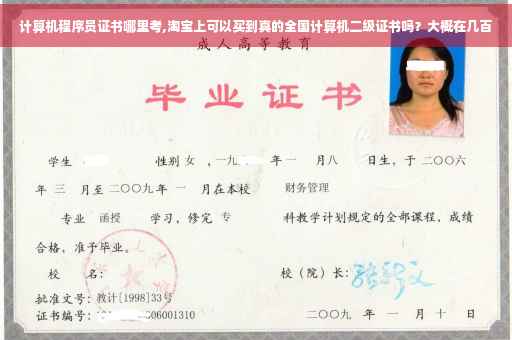 计算机程序员证书哪里考,淘宝上可以买到真的全国计算机二级证书吗？大概在几百
成人高等教育
毕业证书
学生 性别 女 ，一九 年 一 月 八 日生，于 二〇〇六
年 三 月至 二〇〇九 年 一 月在本校 财务管理
专业 函授 学习，修完 专 科教学计划规定的全部课程，成绩
合格，准予毕业。
校 名： 校（院）长：
批准文号：教计[1998]33号
证书编号： 006001310 二〇〇九 年 一 月 十 日